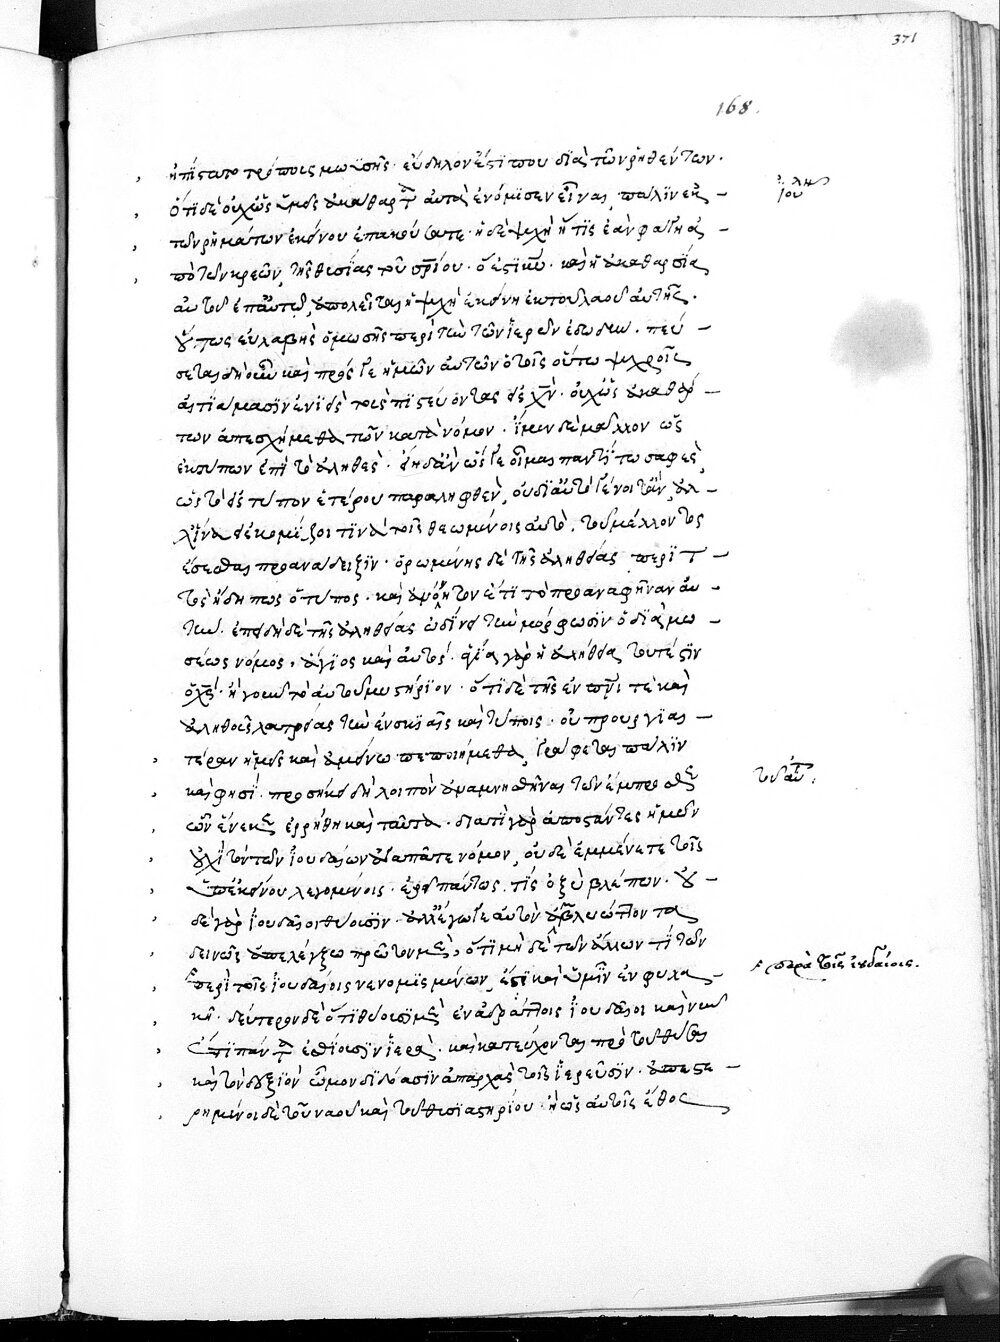 371
168.
ἠπίστατο τρόποις μωϋσῆς· εὔδηλον ἔστι που διὰ τῶν ῥηθέντων·
ὅτι δὲ οὐχ ὡς ὑμεῖς ἀκάθαρτα αὐτὰ ἐνόμισεν εἶναι, πάλιν ἐκ
τῶν ῥημάτων ἐκείνου ἐπακούσατε· ἡ δὲ ψυχὴ ἥτις ἐὰν φάγῃ ἀ
πὸ τῶν κρεῶν τῆς θυσίας τοῦ σωτηρίου· ὅ ἐστι κυρίου· καὶ ἡ ἀκαθαρσία
αὐτοῦ ἐπ' αὐτῷ, ἀπολεῖται ἡ ψυχὴ ἐκείνη ἐκ τοῦ λαοῦ αὐτῆς·
οὕτως εὐλαβὴς ὁ μωσῆς περὶ τὴν τῶν ἱερῶν ἐδωδήν. πεύ
σεται δὴ οὖν καὶ πρός γε ἡμῶν αὐτῶν ὁ τοῖς οὕτω ψυχροῖς
αἰτιάμασιν ἐνιεὶς τοῖς πιστεύοντας εἰς χν· οὐχ ὡς ἀκαθάρ
των ἀπεσχήμεθα τῶν κατὰ νόμον· ἵμεν δὲ μᾶλλον ὡς
ἐκ τύπων ἐπὶ τὸ ἀληθές· εἴη δ' ἂν ὥς γε οἶμαι παντί τῳ σαφές,
ὡς τὸ εἰς τύπον ἑτέρου παραληφθέν, οὐ δι' αὐτὸ γένοιτ' ἄν, ἀλ
λ' ἵνα εἰσκομίζοι τινὰ τοῖς θεωμένοις αὐτό, τοῦ μέλλοντος
ἔσεσθαι προανάδειξιν· ὁρωμένης δὲ τῆς ἀληθείας περιτ
τὸς ἤδη πως ὁ τύπος· καὶ ἀνόνητον ἔτι τὸ προαναφῆναν αὐ
τήν. ἐπειδὴ δὲ τῆς ἀληθείας ὤδινε τὴν μόρφωσιν ὁ διὰ μω
σέως νόμος, ἅγιος καὶ αὐτός· ἁγία γὰρ ἡ ἀλήθεια τουτέστιν
ὁ χς· ἤγουν τὸ αὐτοῦ μυστήριον· ὅτι δὲ τῆς ἐν πνι τε καὶ
ἀληθοῦς λατρείας τὴν ἐν σκιαῖς καὶ τύποις· οὐ προυργιαι
τέραν ἡμεῖς καὶ ἀμείνω πεποιήμεθα, γράφεται πάλιν
καί φησι· προσήκει δὴ λοιπὸν ἀναμνησθῆναι τῶν ἔμπροσθεν
ὧν ἕνεκεν ἐρρήθη καὶ ταῦτα· διὰ τί γὰρ ἀποστάντες ἡμῶν
οὐχὶ τὸν τῶν ἰουδαίων ἀγαπᾶτε νόμον, οὐδὲ ἐμμένετε τοῖς
ὑπ' ἐκείνου λεγομένοις· ἐρεῖ πάντως τίς ὀξὺ βλέπων· οὐ
δὲ γὰρ ἰουδαῖοι θύουσιν· ἀλλ' ἔγωγε αὐτὸν ἀμβλυώττοντα
δεινῶς ἀπελέγξω πρῶτον μέν, ὅτι μὴ δὲ τῶν ἄλλων τι τῶν
περὶ τοῖς ἰουδαίοις νενομισμένων, ἐστὶ καὶ ὑμῖν ἐν φυλα
κῇ· δεύτερον δὲ ὅτι θύουσι μὲν ἐν ἀδράκτοις ἰουδαῖοι καὶ νῦν
ἔτι πάντα ἐσθίουσιν ἱερά· καὶ κατεύχονται πρὸ τοῦ θῦσαι
καὶ τὸν δεξιὸν ὦμον διδόασιν ἀπαρχὰς τοῖς ἱερεῦσιν· ἀπεστε
ρημένοι δὲ τοῦ ναοῦ καὶ τοῦ θυσιαστηρίου· ἢ ὡς αὐτοῖς ἔθος
ἰουλη
τοῦ αὐτ.
παρὰ τοῖς ἰουδαίοις.